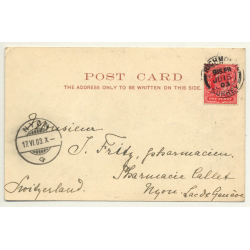 POST CARD
THE ADDRESS ONLY TO BE WRITTEN ON THIS SIDE.
NYON
17.VI.03.X-
Monsieur
J. Fritz, pharmacien,
Pharmacie Callet
Switzerland. Nyon. Lac de Genève